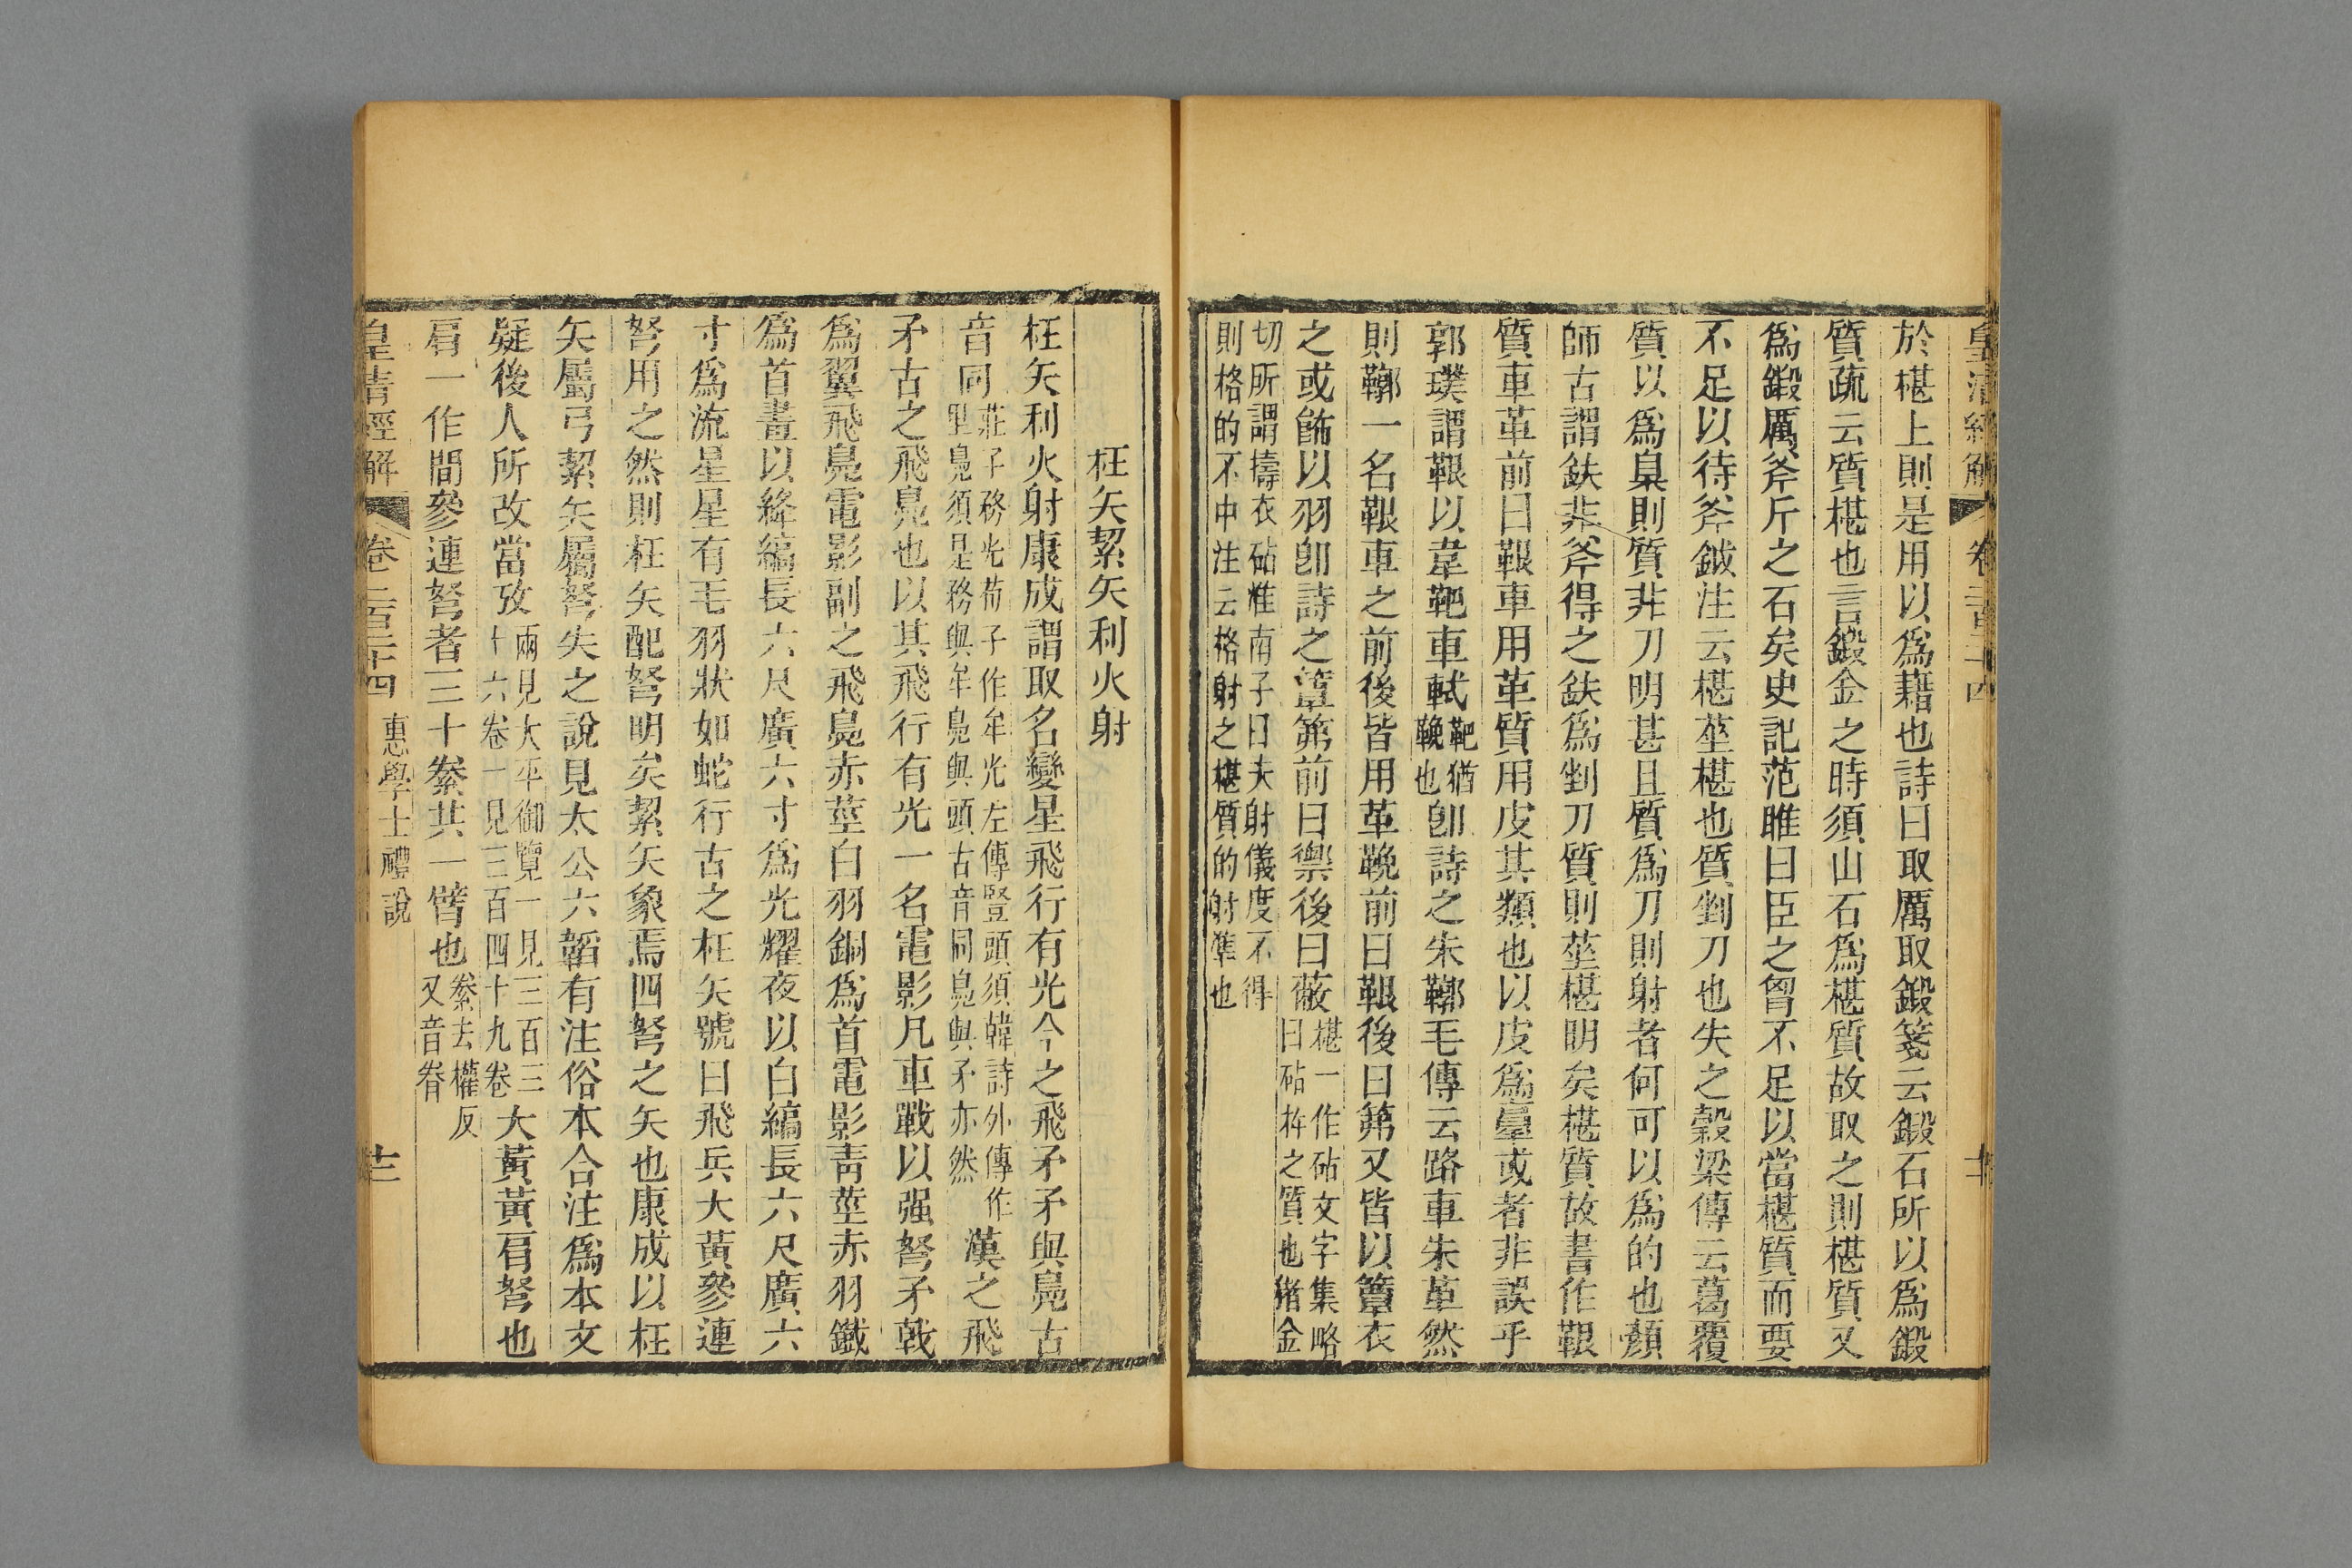 皇清經解 卷二百二十四
於椹上則是用以爲藉也詩曰取厲取鍛箋云鍛石所以爲鍛
質疏云質椹也言鍛金之時須山石爲椹質故取之則椹質又
爲鍛厲斧斤之石矣史記范雎曰臣之胷不足以當椹質而要
不足以待斧鉞注云椹莝椹也質剉刀也失之穀梁傳云葛覆
質以爲臬則質非刀明甚且質爲刀則射者何可以爲的也顏
師古謂鈇非斧得之鈇爲剉刀質則莝椹明矣椹質故書作鞎
質車革前曰鞎車用革質用皮其類也以皮爲臺或者非誤乎
郭璞謂鞎以韋靶車軾靶猶鞔也卽詩之朱鞹毛傳云路車朱革然
則鞹一名鞎車之前後皆用革鞔前曰鞎後曰笰又皆以簟衣
之或飾以羽卽詩之簟笰前曰禦後曰蔽椹一作砧文字集略
曰砧杵之質也猪金
切所謂擣衣砧淮南子曰夫射儀度不得
則格的不中注云格射之椹質的射準也
枉矢絜矢利火射
枉矢利火射康成謂取名變星飛行有光今之飛矛矛與鳧古
音同莊子務光荀子作牟光左傳豎頭須韓詩外傳作
里鳧須是務與牟鳧與頭古音同鳧與矛亦然漢之飛
矛古之飛鳧也以其飛行有光一名電影凡車戰以强弩矛戟
爲翼飛鳧電影副之飛鳧赤莖白羽銅爲首電影靑莖赤羽鐵
爲首晝以絳縞長六尺廣六寸爲光耀夜以白縞長六尺廣六
寸爲流星星有毛羽狀如蛇行古之枉矢號曰飛兵大黃參連
弩用之然則枉矢配弩明矣絜矢象焉四弩之矢也康成以枉
矢屬弓絜矢屬弩失之說見太公六韜有注俗本合注爲本文
疑後人所改當攷兩見太平御覽一見三百三
十六卷一見三百四十九卷大黃黃肩弩也
肩一作間參連弩者三十絭共一臂也絭去權反
又音眷
皇清經解 卷二百二十四 惠學士禮說